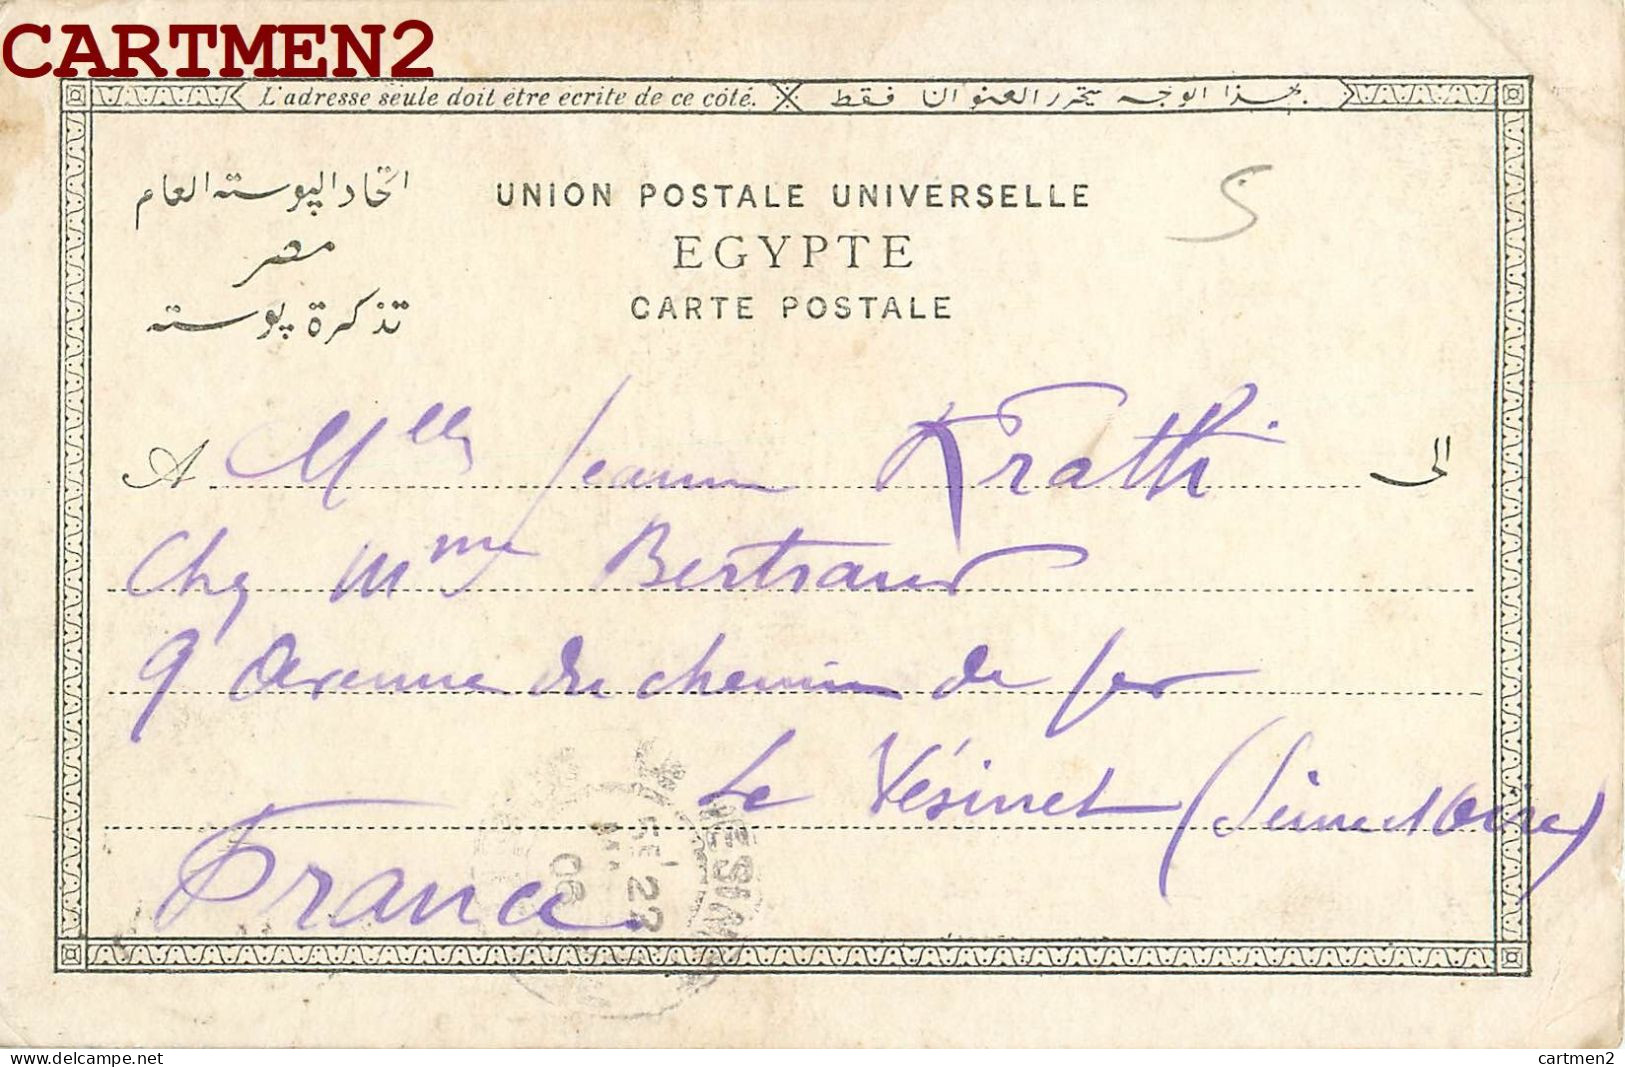 CARTMEN2
L'adresse seule doit être écrite de ce côté. هذا الوجه يتحرر العنوان فقط
اتحاد البوسته العام
مصر
تذكرة بوسته
UNION POSTALE UNIVERSELLE
EGYPTE
CARTE POSTALE
5
A Mlle Jeanne Krath الى
Chez Mme Bertrand
9 Avenue du chemin de fer
Le Vésinet (Seine et Oise)
France
VESINET
22
06
delcampe.net
cartmen2